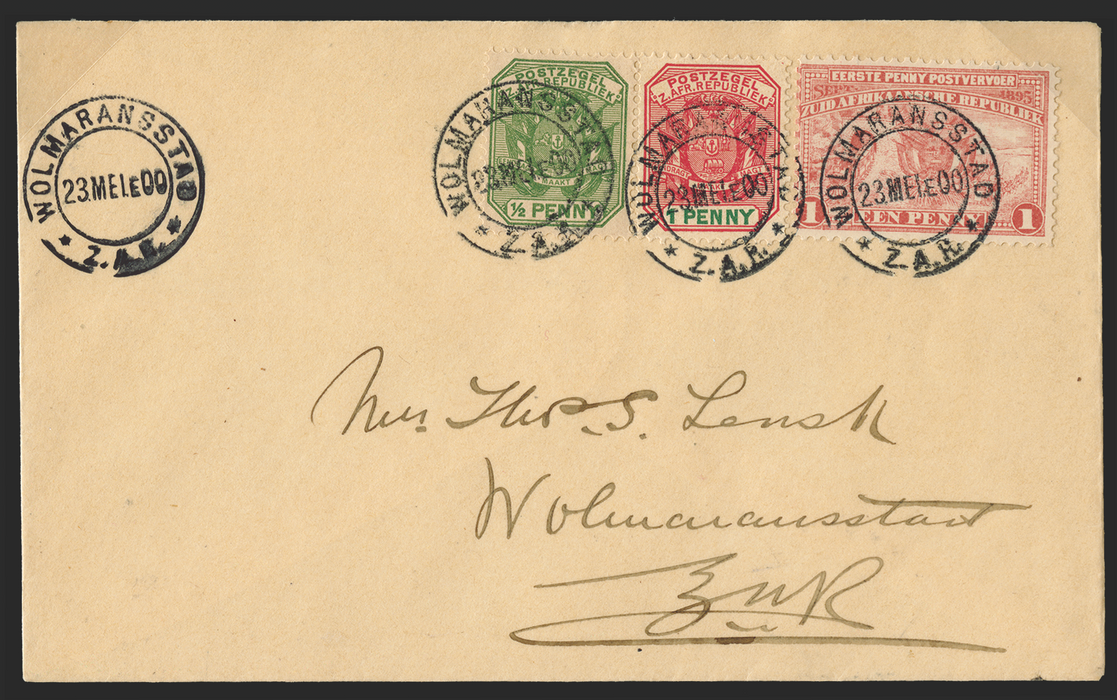 WOLMARANSSTAD
23.MEI.E00
Z.A.R.
POSTZEGEL
Z.AFR.REPUBLIEK
MAAKT
½ PENNY
WOLMARANSSTAD
23.MEI.E00
Z.A.R.
POSTZEGEL
Z.AFR.REPUBLIEK
1 PENNY
WOLMARANSSTAD
23.MEI.E00
Z.A.R.
EERSTE PENNY POSTVERVOER
SEPT. 1895
ZUID AFRIKAANSCHE REPUBLIEK
1 EEN PENNY 1
WOLMARANSSTAD
23.MEI.E00
Z.A.R.
Thos. S. Lensk
Wolmaransstad